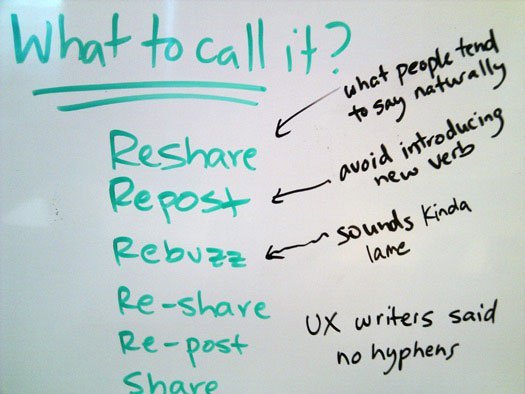 What to call it?
what people tend
to say naturally
Reshare
avoid introducing
new verb
Repost
sounds kinda
lame
Rebuzz
Re-share
UX writers said
no hyphens
Re-post
Share